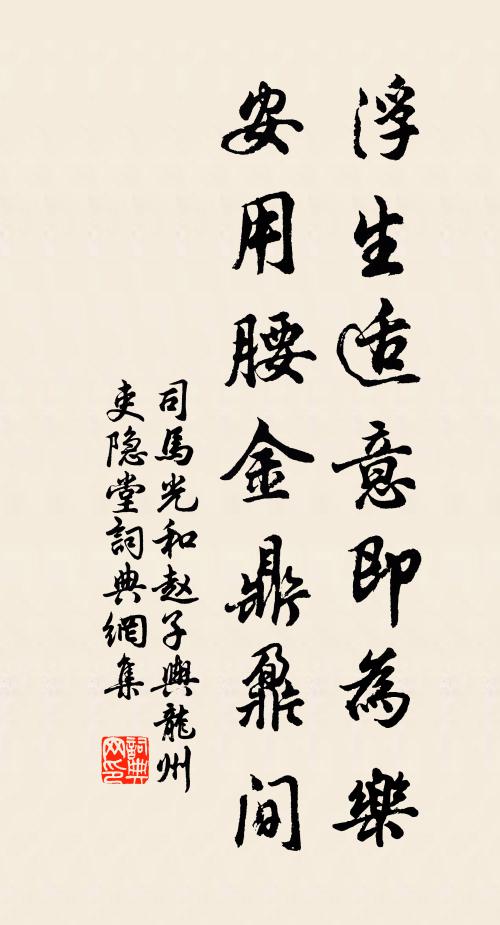 浮生适意即為樂
安用腰金鼎鼐間
司馬光和赵子輿龍州
吏隐堂詞典網集
詞典網印